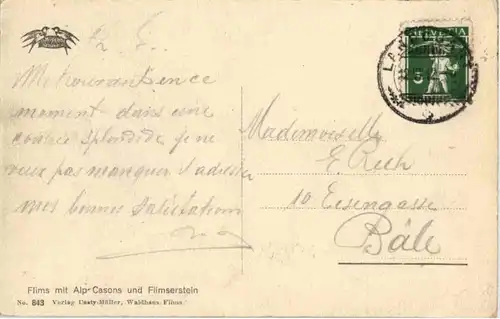 Me trouvant en ce
moment dans une
contrée splendide je ne
veux pas manquer d'adresser
mes bonnes salutations
Mademoiselle
E. Rich
10 Eisengasse
Bâle
HELVETIA
Flims mit Alp-Casons und Flimserstein
No. 843 Verlag Casty-Müller, Waldhaus-Flims